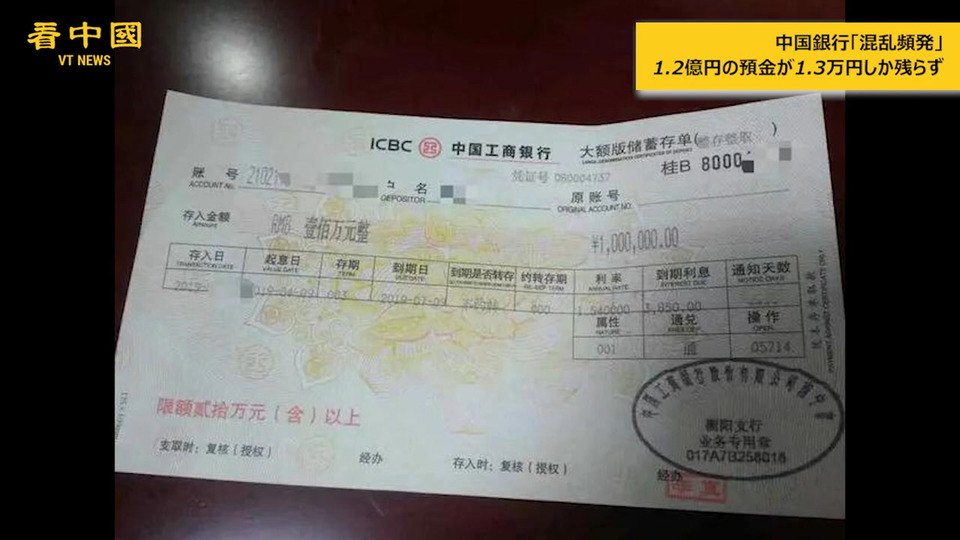 看中國
VT NEWS
中国銀行「混乱頻発」
1.2億円の預金が1.3万円しか残らず
ICBC 中国工商银行
大额版储蓄存单(整存整取)
凭证号 080004737
桂B 8000
账 号 21021
ACCOUNT No.
户 名
DEPOSITOR
原 账 号
ORIGINAL ACCOUNT NO.
存入金额 RMB 壹佰万元整 ¥1,000,000.00
Amount
存入日 起息日 存期 到期日 到期是否转存 约转存期 利率 到期利息 通知天数
TRANSACTION DATE VALUE DATE TERM DUE DATE ANNUAL RATE INTEREST DUE
2019- 019-04-09 003 2019-07-09 不约转 000 1.540000 3,850.00
属性 通兑 操作
NATURE OPER.
001 通 05714
限额贰拾万元（含）以上
支取时：复核（授权） 经办 存入时：复核（授权） 经办
衡阳支行
业务专用章